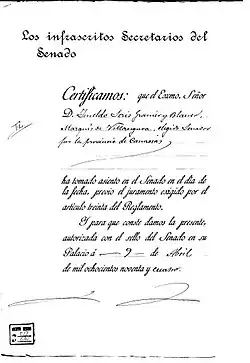 Los infrascritos Secretarios del
Senado
Certificamos: que el Excmo. Señor
D. Imeldo Seris Granier y Blanco,
Marqués de Villasegura, elegido Senador
por la provincia de Canarias
ha tomado asiento en el Senado en el dia de
la fecha, previo el juramento exigido por el
artículo treinta del Reglamento.
Y para que conste damos la presente,
autorizada con el sello del Senado en su
Palacio á 9 de Abril
de mil ochocientos noventa y cuatro.